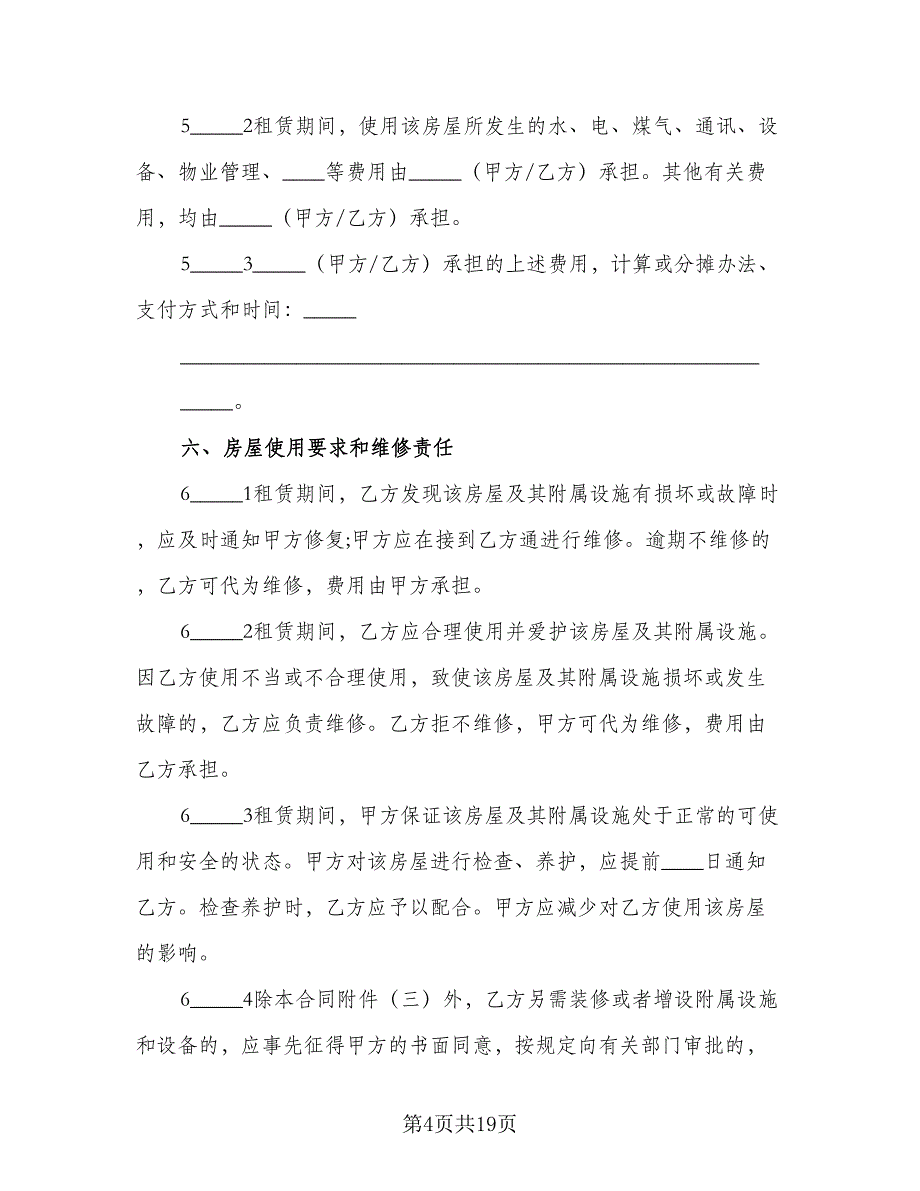 5_____2租赁期间，使用该房屋所发生的水、电、煤气、通讯、设
备、物业管理、____等费用由_____（甲方/乙方）承担。其他有关费
用，均由_____（甲方/乙方）承担。
5_____3_____（甲方/乙方）承担的上述费用，计算或分摊办法、
支付方式和时间：_____
_______________________________________________________
_____。
六、房屋使用要求和维修责任
6_____1租赁期间，乙方发现该房屋及其附属设施有损坏或故障时
，应及时通知甲方修复;甲方应在接到乙方通进行维修。逾期不维修的
，乙方可代为维修，费用由甲方承担。
6_____2租赁期间，乙方应合理使用并爱护该房屋及其附属设施。
因乙方使用不当或不合理使用，致使该房屋及其附属设施损坏或发生
故障的，乙方应负责维修。乙方拒不维修，甲方可代为维修，费用由
乙方承担。
6_____3租赁期间，甲方保证该房屋及其附属设施处于正常的可使
用和安全的状态。甲方对该房屋进行检查、养护，应提前____日通知
乙方。检查养护时，乙方应予以配合。甲方应减少对乙方使用该房屋
的影响。
6_____4除本合同附件（三）外，乙方另需装修或者增设附属设施
和设备的，应事先征得甲方的书面同意，按规定向有关部门审批的，
第4页共19页